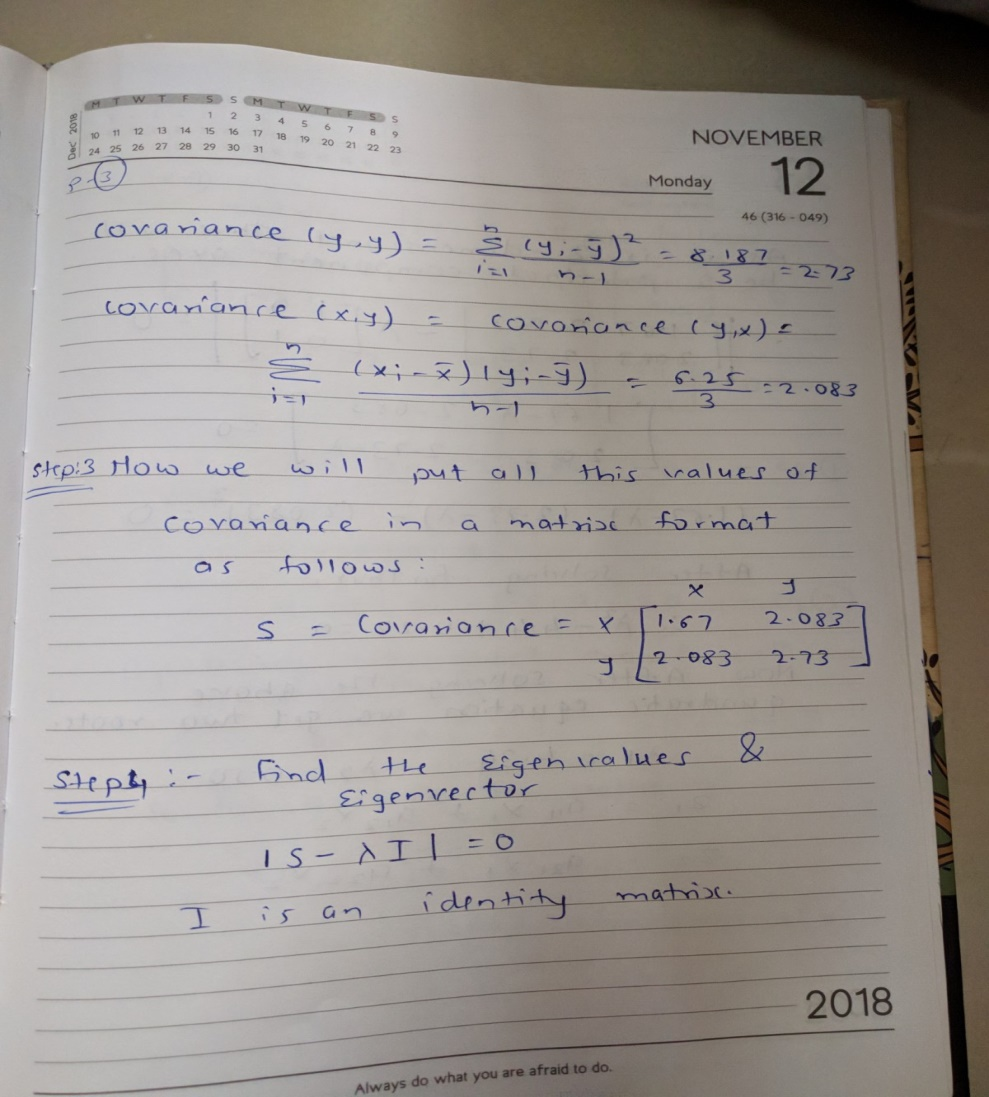 Dec' 2018
M T W T F S S M T W T F S S
1 2 3 4 5 6 7 8 9
10 11 12 13 14 15 16 17 18 19 20 21 22 23
24 25 26 27 28 29 30 31
NOVEMBER
Monday 12
46 (316 - 049)
P-3
covariance (y,y) = n Σ i=1 (yi-ȳ)² / n-1 = 8.187 / 3 = 2.73
covariance (x,y) = covariance (y,x) =
n Σ i=1 (xi-x̄)(yi-ȳ) / n-1 = 6.25 / 3 = 2.083
step:3 Now we will put all this values of
covariance in a matrix format
as follows:
x y
S = Covariance = x [1.67 2.083]
y [2.083 2.73]
Step4 :- Find the Eigenvalues &
Eigenvector
|S - λI| = 0
I is an identity matrix.
2018
Always do what you are afraid to do.